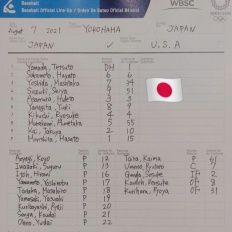 Baseball
Official Line-Up / Ordre De Batteur Officiel
WBSC
August 7 2021 YOKOHAMA JAPAN
JAPAN U.S.A
1 Yamada, Tetsuto DH 1
2 Sakamoto, Hayato 6 6
3 Yoshida, Masataka 7 34
4 Suzuki, Seiya 9 51
5 Asamura, Hideto 3 3
6 Yanagita, Yuki 8 9
7 Kikuchi, Ryosuke 4 4
8 Murakami, Munetaka 5 55
9 Kai, Takuya 2 10
Morishita, Masato 1 15
Aoyagi, Koyo P 12
Iwazaki, Suguru P 13
Itoh, Hiromi P 16
Yamamoto, Yoshinobu P 17
Tanaka, Masahiro P 18
Yamasaki, Yasuaki P 19
Kuribayashi, Ryoji P 20
Senga, Kodai P 21
Ohno, Yudai P 22
Taira, Kaima P 61
Umeno, Ryutaro C
Genda, Sosuke IF 2
Kondoh, Kensuke OF 8
Kurihara, Ryoya OF 31